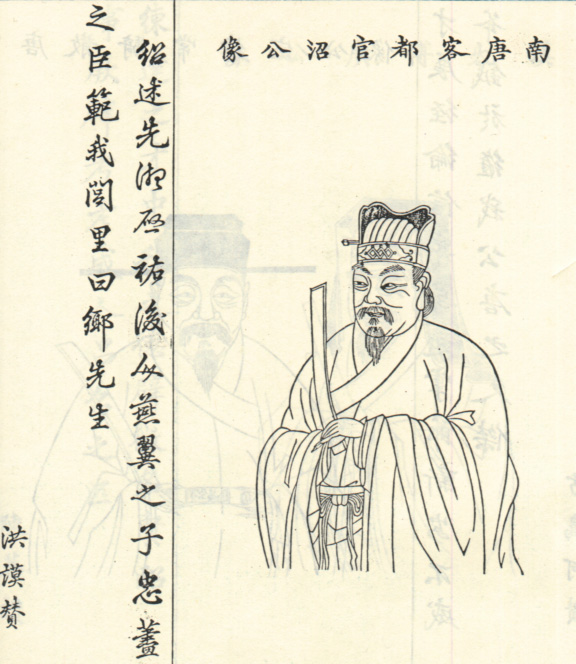 南唐客都官沼公像
紹述先启祐後人燕翼之子忠藎
之臣範我閭里曰鄉先生
洪謨贊